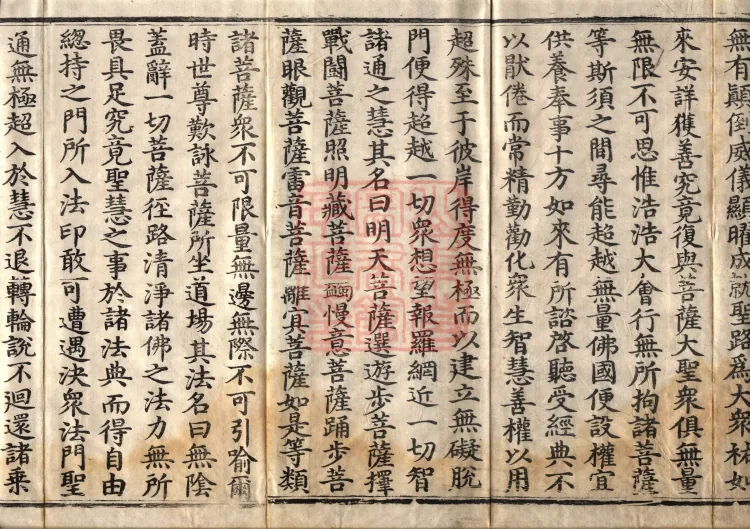 無有顛倒威儀顯曜成就聖路為大衆祐如
來安詳獲善究竟復與菩薩大聖衆俱無量
無限不可思惟浩浩大會行無所拘諸菩薩
等斯須之間尋能超越無量佛國便設權宜
供養奉事十方如來有所諮啓聽受經典不
以猒倦而常精勤勸化衆生智慧善權以用
超殊至于彼岸得度無極而以建立無礙脫
門便得超越一切衆想望報羅網近一切智
諸通之慧其名曰明天菩薩選遊步菩薩擇
戰鬪菩薩照明藏菩薩慢意菩薩踊步菩
薩眼觀菩薩雷音菩薩離冥菩薩如是等類
諸菩薩衆不可限量無邊無際不可引喻爾
時世尊歎詠菩薩所坐道場其法名曰無陰
蓋辭一切菩薩徑路清淨諸佛之法力無所
畏具足究竟聖慧之事於諸法典而得自由
總持之門所入法印敢可遭遇決衆法門聖
通無極超入於慧不退轉輪說不迴還諸乘